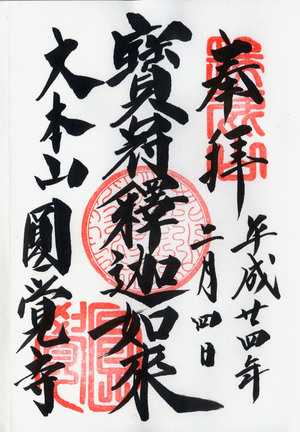 奉拝
平成廿四年
二月四日
寶冠釋迦如来
大本山
圓覚寺